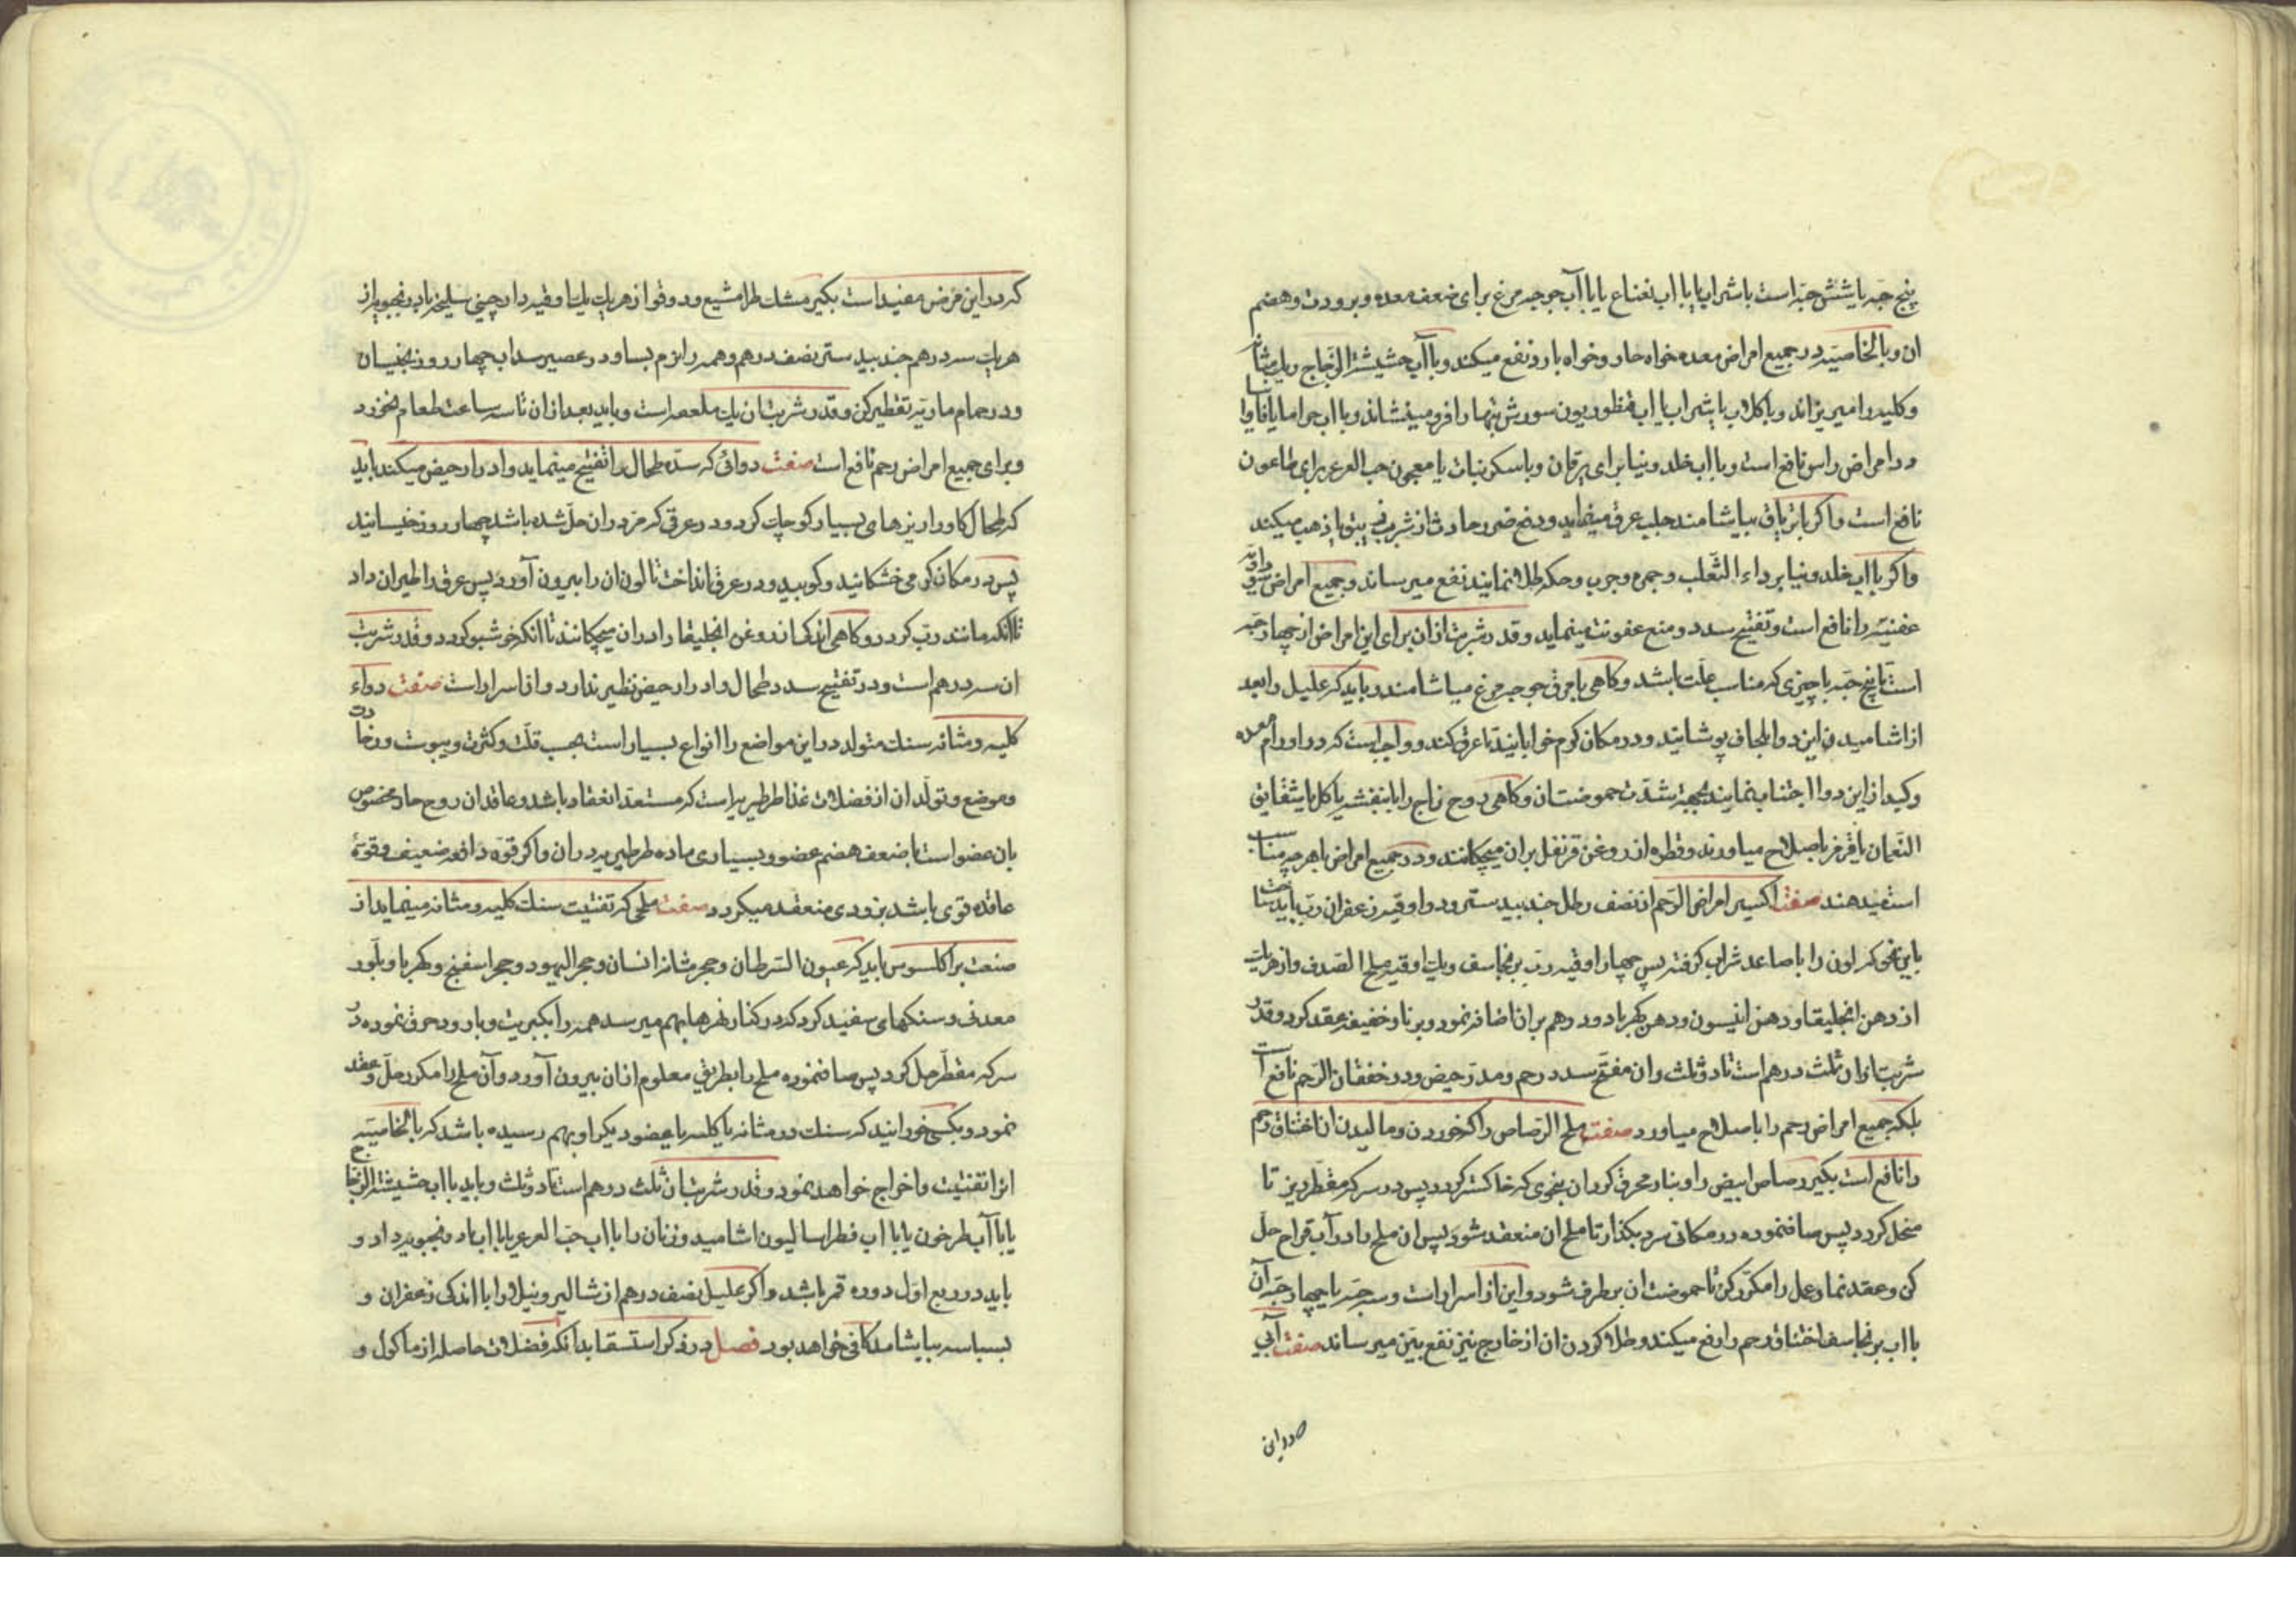 پنج حبه یا شش حبه است با شراب یا با اب نعناع یا با آب جوجه مرغ برای ضعف معده و برودت و هضم
ان و بالخاصیه در جمیع امراض معده خواه حار و خواه بارد نفع میکند و با آب حشیشة الزجاج ریک مثانه
و کلیه را میریزاند و با کلاب یا شراب یا اب قنطوریون سورش تبها را فرو مینشاند و با اب
در امراض راس نافع است و با اب خلدونیا برای یرقان و با سکر نبات یا معجون حب العرعر برای طاعون
نافع است و اکر با تریاق بیاشامند جلب عرق مینماید و دفع ضرر حادث از شرب میکند
و اکر با اب خلدونیا بر داء الثعلب و جمره و جرب و حکه طلا نمایند نفع میرساند و جمیع امراض سوداویه
عفنیه را نافع است و تفتیح سدد و منع عفونت مینماید و قدر شربت ازان برای این امراض از چهار حبه
است تا پنج حبه با چیزی که مناسب علت باشد و کاهی با مرق جوجه مرغ میاشامند و باید که علیل را بعد
از اشامیدن این دوا بلحاف پوشانید و در مکان کرم خوابانید تا عرق کند و واجب است که در اورام معده
و کبد از این دوا اجتناب نمایند بجهة شدت حموضت ان و کاهی روح زاج را با بنفشه یا کل یا شقایق
النعمان یا قرمز باصلاح میاورند و قطره از روغن قرنفل بران میچکانند و در جمیع امراض با هر چه مناسب
است میدهند صفت اکسیر امراض الرحم از نصف رطل جندبیدستر و دو اوقیه زعفران رب باید ساخت
باین نحو که لون را با صاعد شراب کرفته پس چهار اوقیه رب برنجاسف و یک اوقیه ملح الصدف و از هر یک
از دهن انجلیقا و دهن انیسون و دهن کهربا دو درهم بران اضافه نمود و بر نار خفیفه عقد کرد و قدر
شربت ازان ثلث درهم است تا دو ثلث و ان مفتح سدد رحم و مدر حیض و در خفقان الرحم نافع است
بلکه جمیع امراض رحم را باصلاح میاورد صفت ملح الرصاص را که خوردن و مالیدن ان اختناق رحم
را نافع است بکیر رصاص ابیض را و بنار محرق کردان بنحوی که خاکستر کردد پس در سرکه مقطر ریز تا
منحل کردد پس صاف نموده در مکانی سرد بکذار تا ملح ان منعقد شود پس ان ملح را در آب قراح حل
کن و عقد نما و عمل را مکرر کن تا حموضت ان برطرف شود و این از اسرار است و سه حبه یا چهار حبه آن
با اب برنجاسف اختناق رحم را رفع میکند و طلا کردن ان از خارج نیز نفع بین میرساند صفت آبی
که در این
که در این مرض مفید است بکیر مشک طرامشیع و دوقوا از هر یک یک اوقیه دارچینی سلیخه بادرنجبویه از
هر یک سه درهم جندبیدستر نصف درهم و همه را نرم بساو در عصیر سداب چهار روز بخیسان
و در حمام ماریه تقطیر کن و قدر شربت ان یک ملعقه است و باید بعد ازان تا سه ساعت طعام نخورد
و برای جمیع امراض رحم نافع است صفت دوائی که سده طحال را تفتیح مینماید و ادرار حیض میکند باید
که طحال کاو را ریزهای بسیار کوچک کرد و در عرقی که مر دران حل شده باشد چهار روز خیسانید
پس در مکان کرمی خشکانید و کوبید و در عرق انداخت تا لون ان را بیرون آورد پس عرق را طیران داد
تا انکه مانند رب کردد و کاهی اندکی از روغن انجلیقا را دران میچکانند تا انکه خوشبو کردد و قدر شربت
ان سه درهم است و در تفتیح سدد طحال و ادرار حیض نظیر ندارد و از اسرار است صفت دواء
کلیه و مثانه سنک متولد در این مواضع را انواع بسیار است بحسب قلت و کثرت و یبوست و رخاوت
و موضع و تولد ان از فضلات غذا طرطیریه است که مستعد انعقاد باشد و عاقد ان روح حاد مخصوص
بان عضو است با ضعف هضم عضو و بسیاری ماده طرطیریه دران و اکر قوه دافعه ضعیف و قوة
عاقده قوی باشد بزودی منعقد میکردد صفت ملحی که تفتیت سنک کلیه و مثانه مینماید از
صنعت براکلسوس باید که عیون السرطان و حجر مثانه انسان و حجر الیهود و حجر اسفنج و کهربا و بلور
معدنی و سنکهای سفید کرد که در کنار نهرها بهم میرسد همه را بکبریت و بارود حرق نموده در
سرکه مقطر حل کرد پس صاف نموده ملح را بطریق معلوم ازان بیرون آورد و آن ملح را مکرر حل و عقد
نمود و بکسی خورانید که سنک در مثانه یا کلیه یا عضو دیکر او بهم رسیده باشد که بالخاصیه
انرا تفتیت و اخراج خواهد نمود و قدر شربت ان ثلث درهم است تا دو ثلث و باید با اب حشیشة الزجاج
یا با آب طرخون یا با اب فطراسالیون اشامید و زنان را با اب حب العرعر یا با اب بادرنجبویه داد و
باید در ربع اول دوره قمر باشد و اکر علیل نصف درهم از نشا لیرونیلا را با اندکی زعفران و
بسباسه بیاشامد کافی خواهد بود فصل در ذکر استسقا بدانکه فضلات حاصله از ماکول و